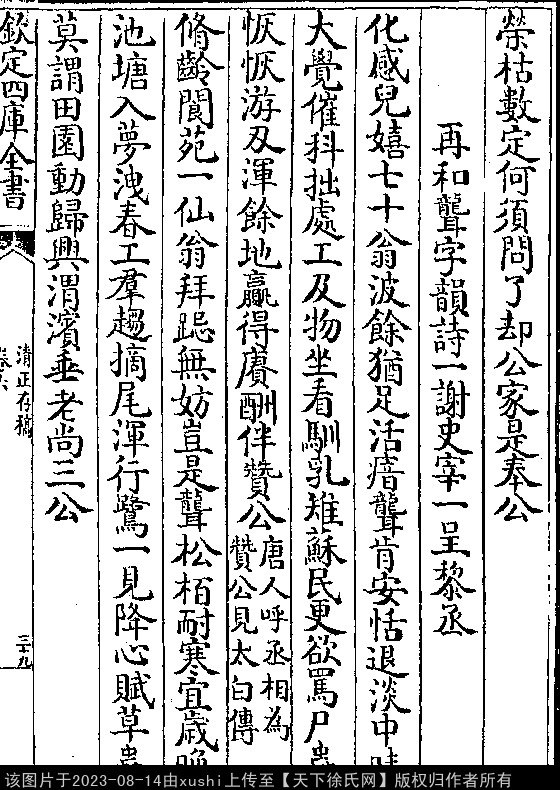 榮枯數定何須問了却公家是奉公
再和聾字韻詩一謝史宰一呈黎丞
化感兒嬉七十翁波餘猶足活瘖聾肯安恬退淡中
大覺催科拙處工及物坐看馴乳雉蘇民更欲罵尸
恢恢游刃渾餘地贏得賡酬伴贊公唐人呼丞相為
贊公見太白傳
脩齡閬苑一仙翁拜跽無妨豈是聾松栢耐寒宜歲
池塘入夢洩春工羣趨摘尾渾行鷺一見降心賦草
莫謂田園動歸興渭濱垂老尚三公
欽定四庫全書
清正存稿
卷六
三十九
该图片于2023-08-14由xushi上传至【天下徐氏网】版权归作者所有